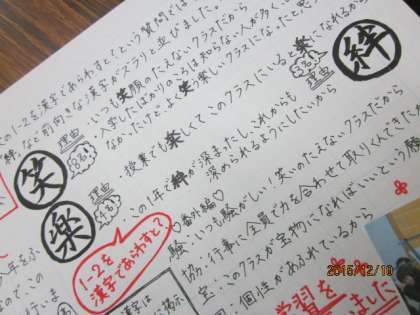 1-2を漢字であらわすと？という質問では
前向きな漢字がズラリと並びました。
笑
理由
・いつも笑顔のたえないクラスだから
・入学したばかりのころは知らない人が多く
なかったけど、よく笑う楽しいクラスになったと思
楽
理由
・授業でも楽しくてこのクラスにいると楽になれるから
絆
理由
・この1年で絆が深まったし、これからも
深められるようにしたいから
♡番外編♡
騒：いつも騒がしい！笑いのたえないクラスだから
協：行事に全員で力を合わせて取りくんできたか
宝：このクラスが宝物になればいいという願
個性があふれているから
1-2を
漢字であらわすと？
学習を
ました
2015/12/18